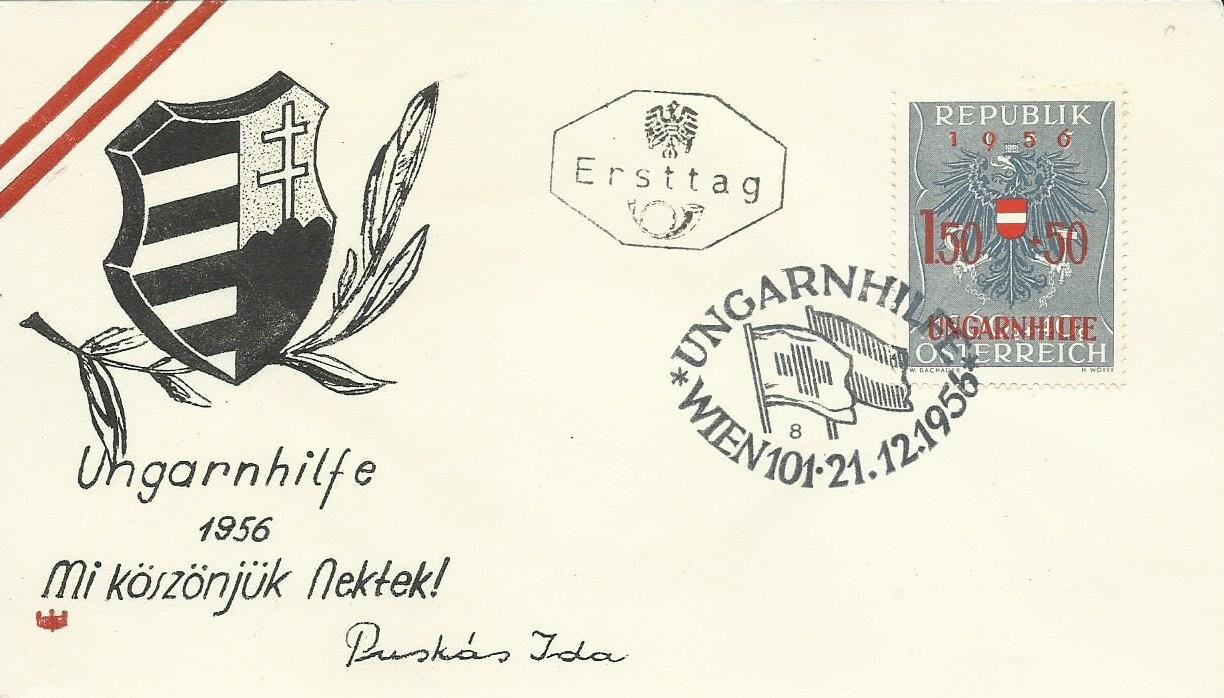 Ersttag
REPUBLIK
1956
1.50 +50
UNGARNHILFE
ÖSTERREICH
W. DACHAUER
*UNGARNHILFE*
WIEN 101·21.12.1956
8
Ungarnhilfe
1956
Mi köszönjük Nektek!
Puskás Ida